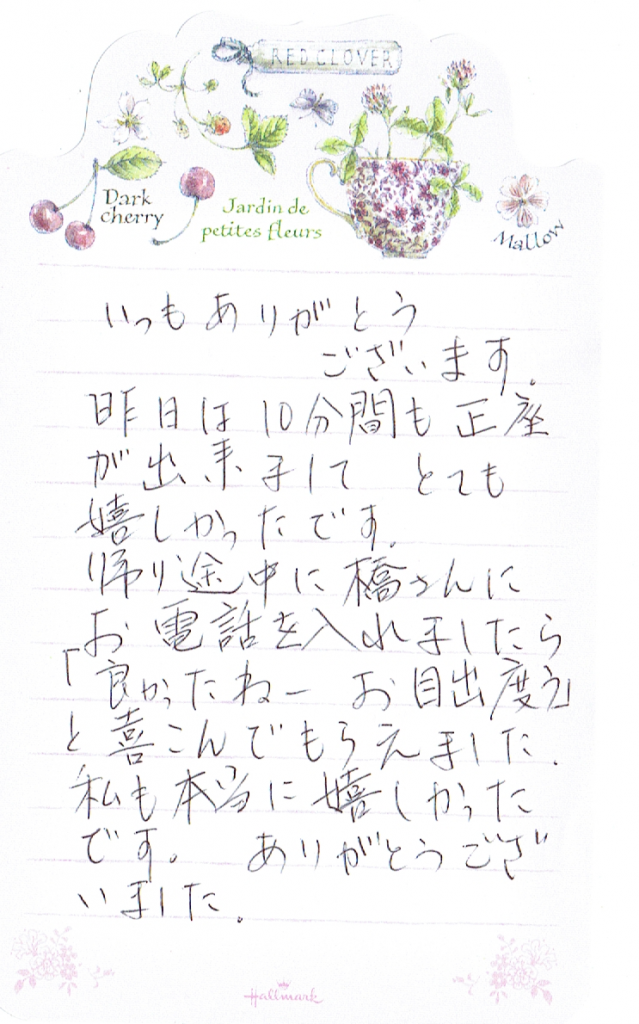 RED CLOVER
Dark
cherry
Jardin de
petites fleurs
Mallow
いつもありがとう
ございます。
昨日は10分間も正座
が出来まして とても
嬉しかったです。
帰り途中に橋さんに
お電話を入れましたら
「良かったねー お目出度う」
と喜こんでもらえました。
私も本当に嬉しかった
です。 ありがとうござ
いました。
Hallmark